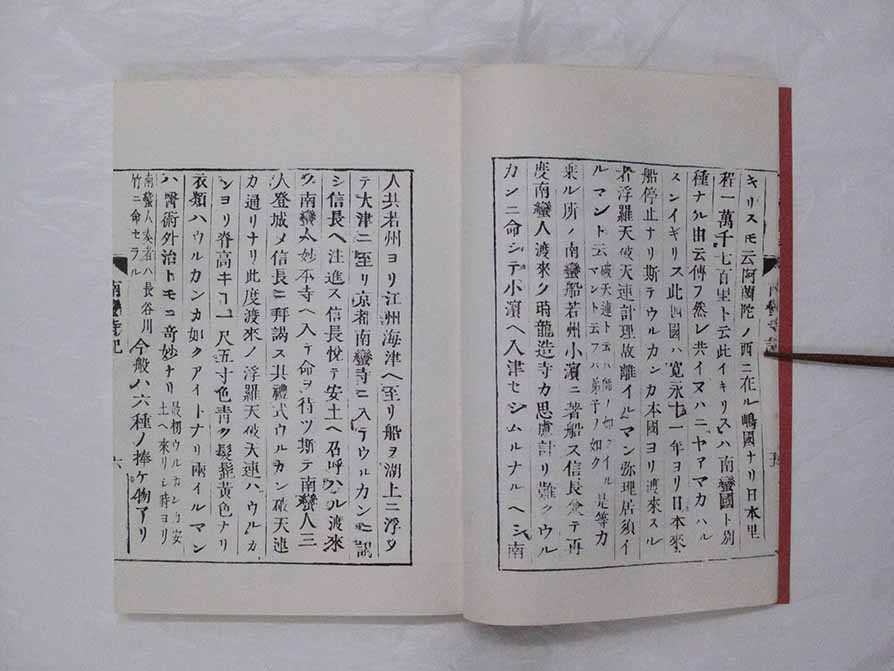 キリスモ云阿蘭陀ノ西ニ在ル嶋國ナリ日本里
程一萬千七百里ト云此イキリスハ南蠻國ト別
種ナル由云傳フ然レ共イマハニヤアマカハル
スンイギリス此四國ハ寛永十一年ヨリ日本來
船停止ナリ斯テウルカンカ本國ヨリ渡來スル
者浮羅天破天連計理故離イルマン弥理居須イ
ルマント云破天連ト云ハ師ノ如クイル
マント云フハ弟子ノ如ク是等カ
乘ル所ノ南蠻船若州小濱ニ著船ス信長兼テ再
度南蠻人渡來ク時龍造寺カ思慮計リ難クウル
カンニ命シテ小濱ヘ入津セシムルナルヘシ南
人共若州ヨリ江州海津ヘ至リ船ヲ湖上ニ浮タ
テ大津ニ至リ京都南蠻寺ニ入テウルカンニ謁
シ信長ヘ注進ス信長悅テ安土ヘ召呼ハル渡來
ノ南蠻人妙本寺ヘ入テ命ヲ待ツ斯テ南蠻人三
人登城メ信長ニ拜謁ス其禮式ウルカン破天連
カ通リナリ此度渡來ノ浮羅天破天連ハウルカ
ンヨリ脊高キ一尺五寸色青ク髮髭黄色ナリ
衣類ハウルカンカ如クアイトナリ兩イルマン
ハ醫術外治トモニ奇妙ナリ最初ウルカンカ安
土ヘ來リシ時ヨリ
南蠻人奏者ハ長谷川
竹ニ命セラル今般ハ六種ノ捧ケ物アリ
南蠻寺記
六